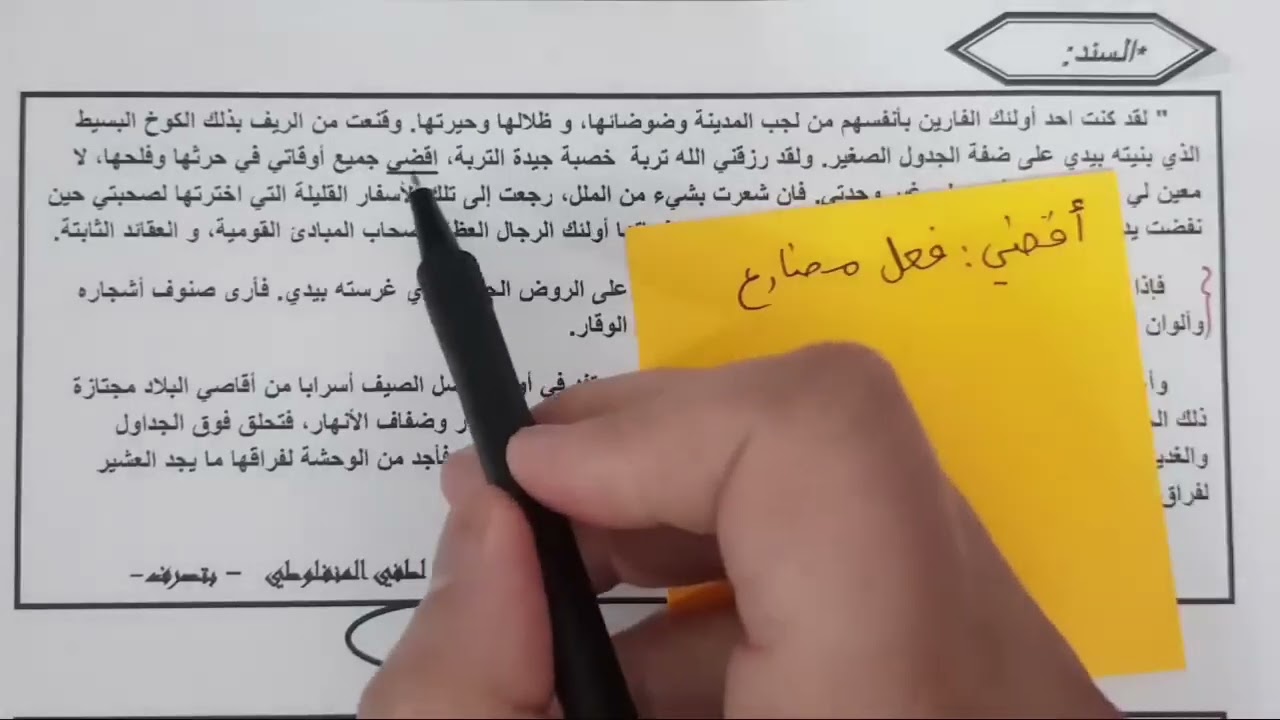 *السند:
" لقد كنت احد أولئك الفارين بأنفسهم من لجب المدينة وضوضائها، و ظلالها وحيرتها. وقنعت من الريف بذلك الكوخ البسيط
الذي بنيته بيدي على ضفة الجدول الصغير. ولقد رزقني الله تربة خصبة جيدة التربة، اقضي جميع أوقاتي في حرثها وفلحها، لا
معين لي وحدتي. فان شعرت بشيء من الملل، رجعت إلى تلك الأسفار القليلة التي اخترتها لصحبتي حين
نفضت أولئك الرجال أصحاب المبادئ القومية، و العقائد الثابتة.
أقضي: فعل مضارع
فإذا على الروض غرسته بيدي. فأرى صنوف أشجاره
وألوان الوقار.
في الصيف أسرابا من أقاصي البلاد مجتازة
ذلك وضفاف الأنهار، فتحلق فوق الجداول
فأجد من الوحشة لفراقها ما يجد العشير
لفراق
لطفي المنفلوطي - بتصرف-